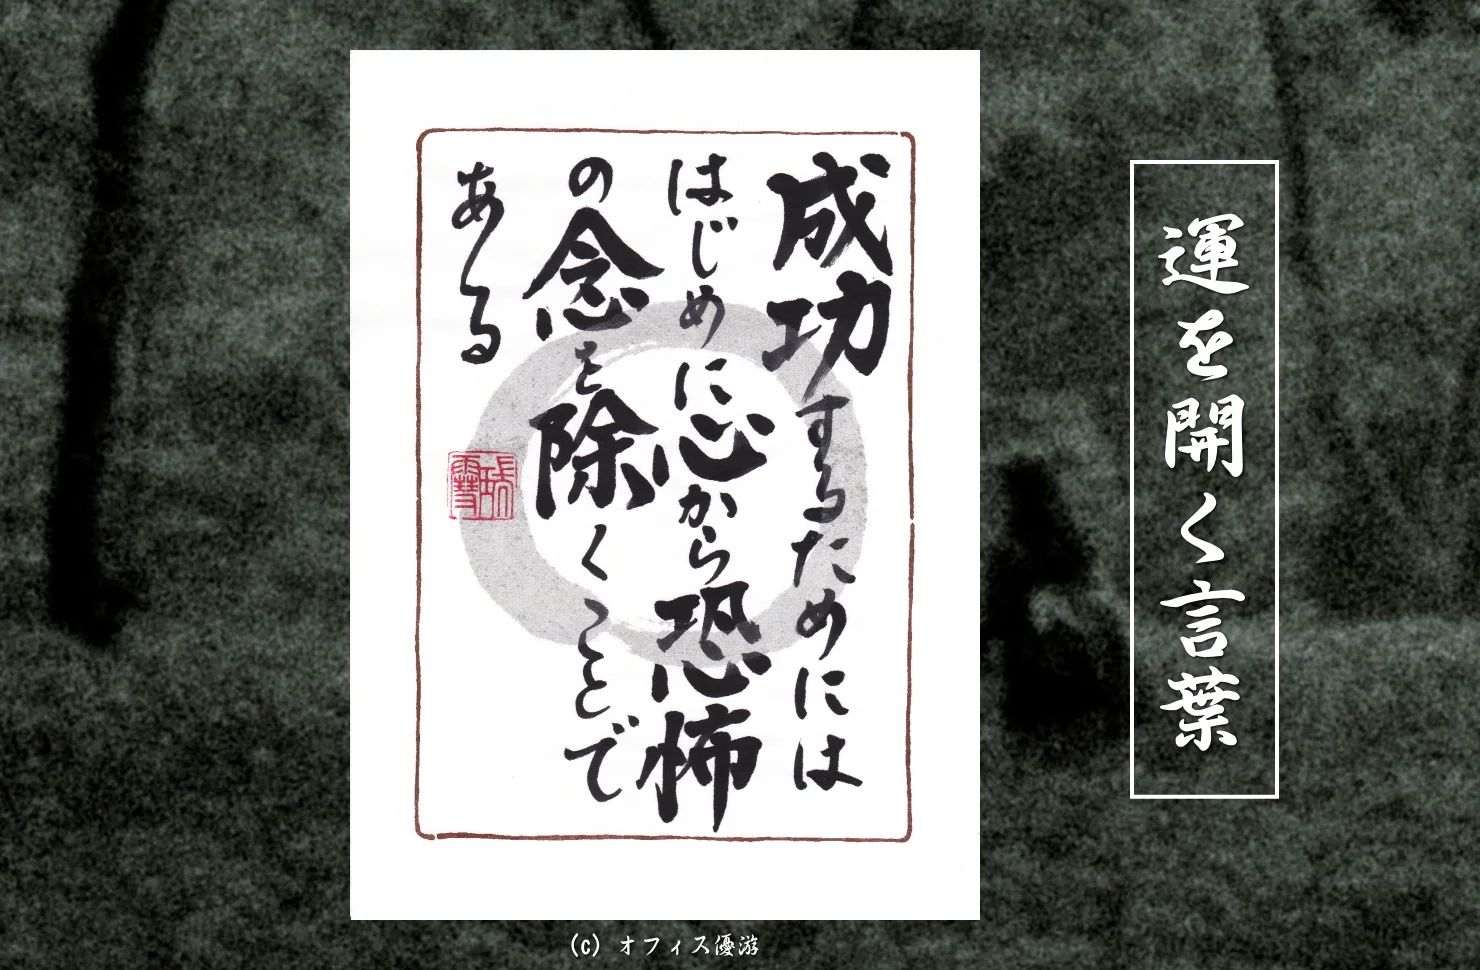 運を開く言葉
成功するためには
はじめに心から恐怖
の念を除くことで
ある
(c) オフィス優游